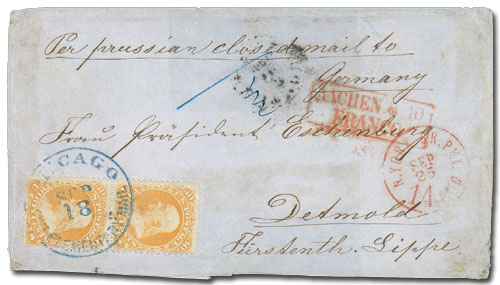 Per prussian closed mail to
Germany
AACHEN
FRANCO
Frau Präsident Eschenburg
CHICAGO
SEP
18
N.YORK BR. PKT.
SEP
14
Detmold
Fürstenth. Lippe.